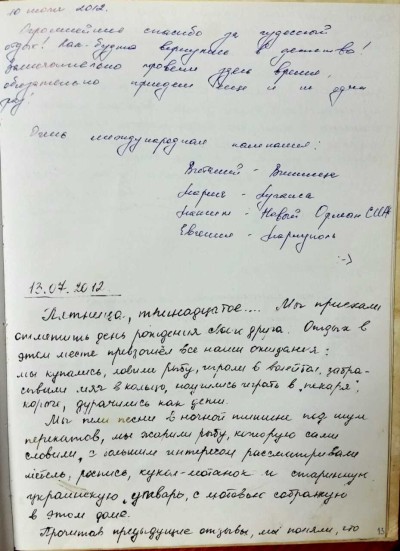 10 июля 2012.
Огромнейшее спасибо за чудесный
отдых! Как будто вернулись в детство!
Замечательно провели здесь время,
обязательно приедем еще и не один
раз!
Очень международная компания:
Виталий - Винница
Мария - Луганск
Максим - Новый Орлеан США
Евгения - Мариуполь
:-)
13.07.2012
Пятница, тринадцатое.... Мы приехали
отметить день рождения своих друга. Отдых в
этом месте превзошёл все наши ожидания:
мы купались, ловили рыбу, играли в волейбол, забра-
сывали мяч в кольцо, научились играть в "пекаря",
короче, дурачились как дети.
Мы пели песни в ночной тишине под шум
перекатов, мы жарили рыбу, которую сами
словили, с большим интересом рассматривали
мебель, роспись, кукол-мотанок и старинную
украинскую утварь, с любовью собранную
в этом доме.
Прочитав предыдущие отзывы, мы поняли, что